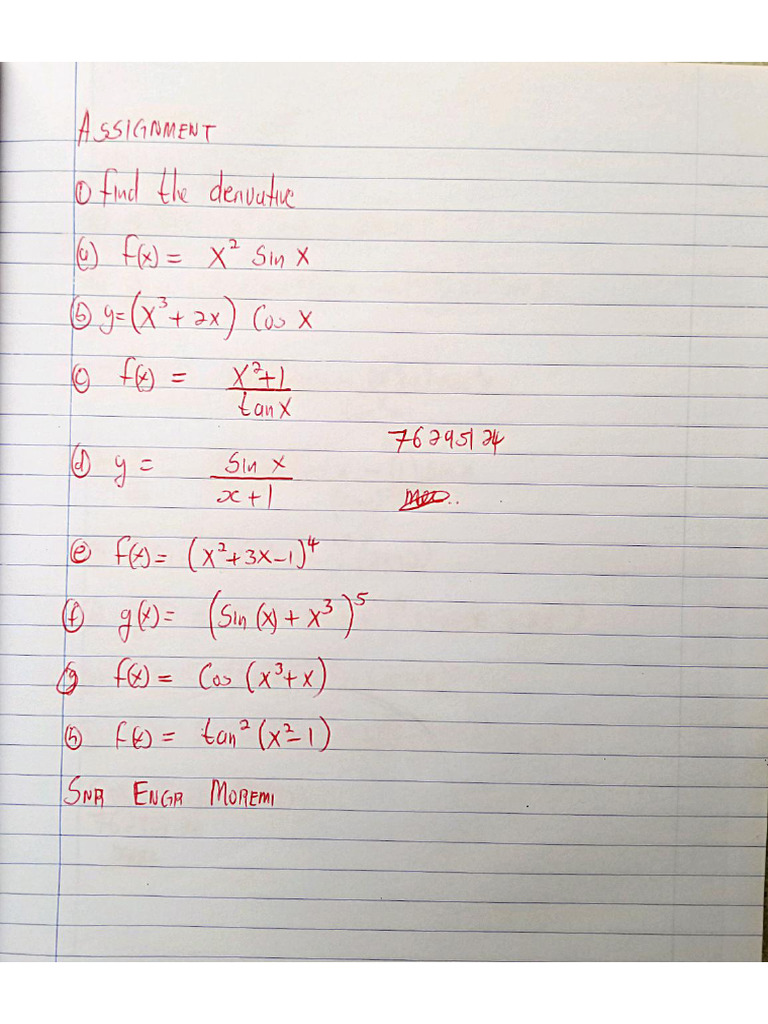 ASSIGNMENT
① find the derivative
(a) f(x) = x² sin x
ⓑ y = (x³ + 2x) Cos x
ⓒ f(x) = x²+1 / tan x
76295124
ⓓ y = sin x / x + 1
ⓔ f(x) = (x²+3x-1)⁴
ⓕ g(x) = (Sin (x) + x³)⁵
ⓖ f(x) = Cos (x³+x)
ⓗ f(x) = tan² (x²-1)
SNR ENGR MOREMI